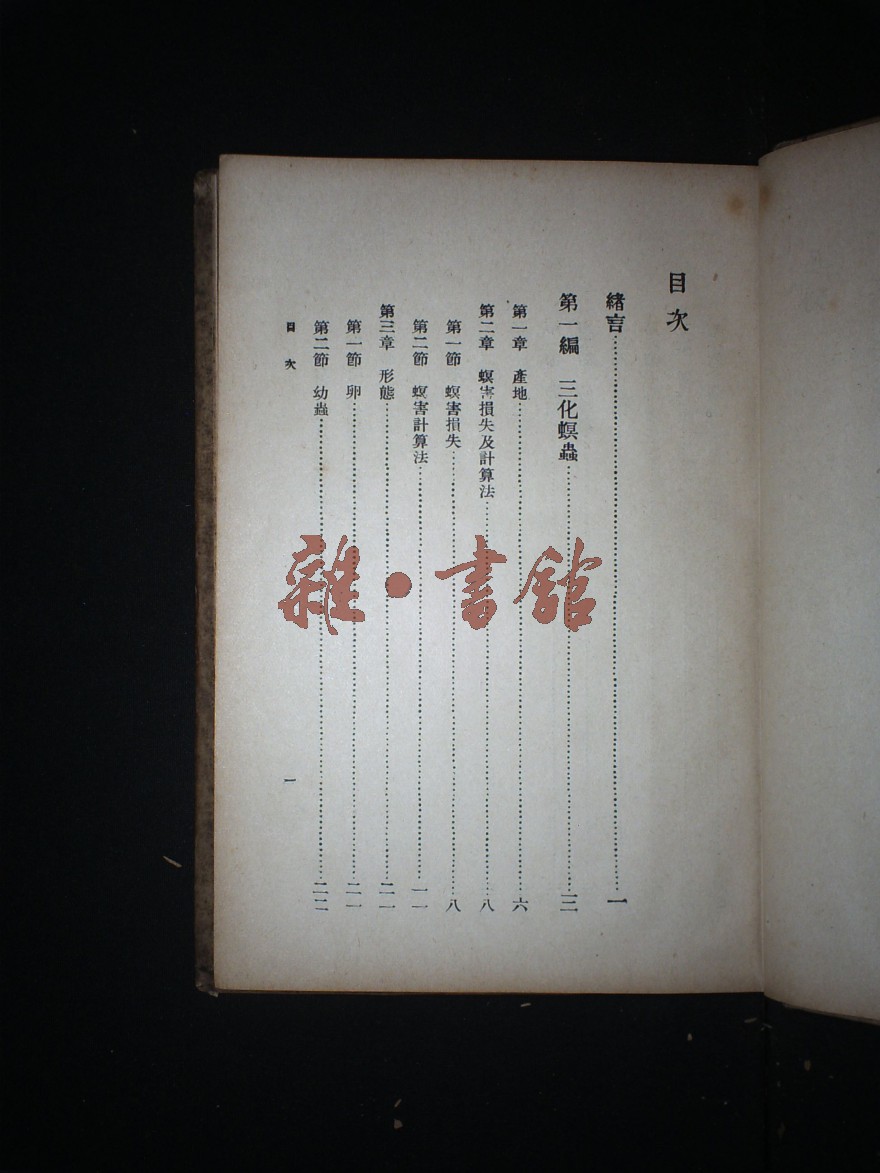 目次
緒言……一
第一編 三化螟蟲……三
第一章 產地……六
第二章 螟害損失及計算法……八
第一節 螟害損失……八
第二節 螟害計算法……一一
第三章 形態……二一
第一節 卵……二一
第二節 幼蟲……二二
目次
一
雜・書館